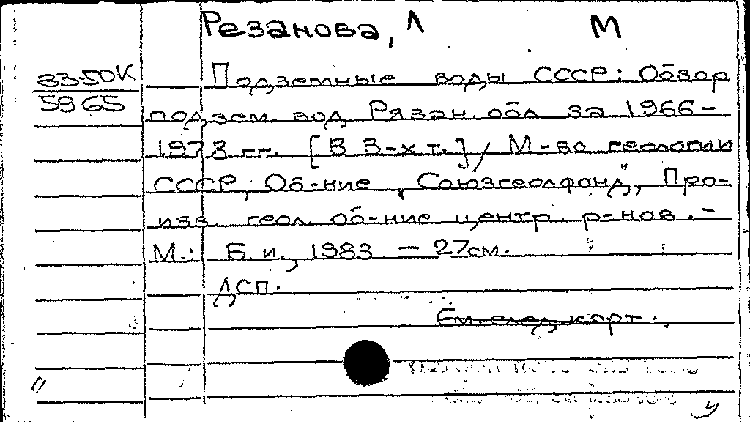 Резанова, Л М
83-50К
5965
Подземные воды СССР: Обзор
подзем. вод Рязан. обл. за 1966-
1978 гг. [В 3-х т.] / М-во геологии
СССР, Об-ние „Союзгеолфонд", Про-
изв. геол. об-ние центр. р-нов. -
М.: Б. и., 1983 - 27см.
ДСП.
См. след. карт.